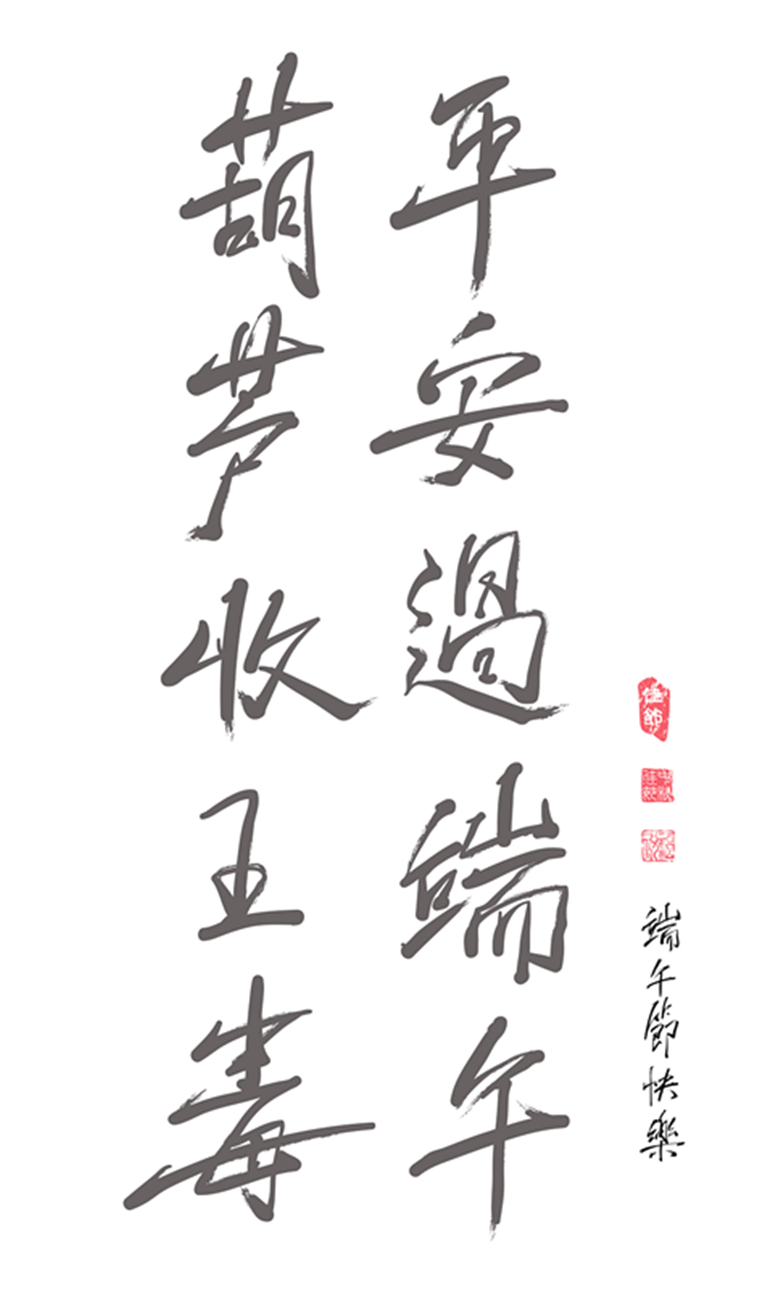 平安過端午
葫芦收五毒
佳節
端午節快樂